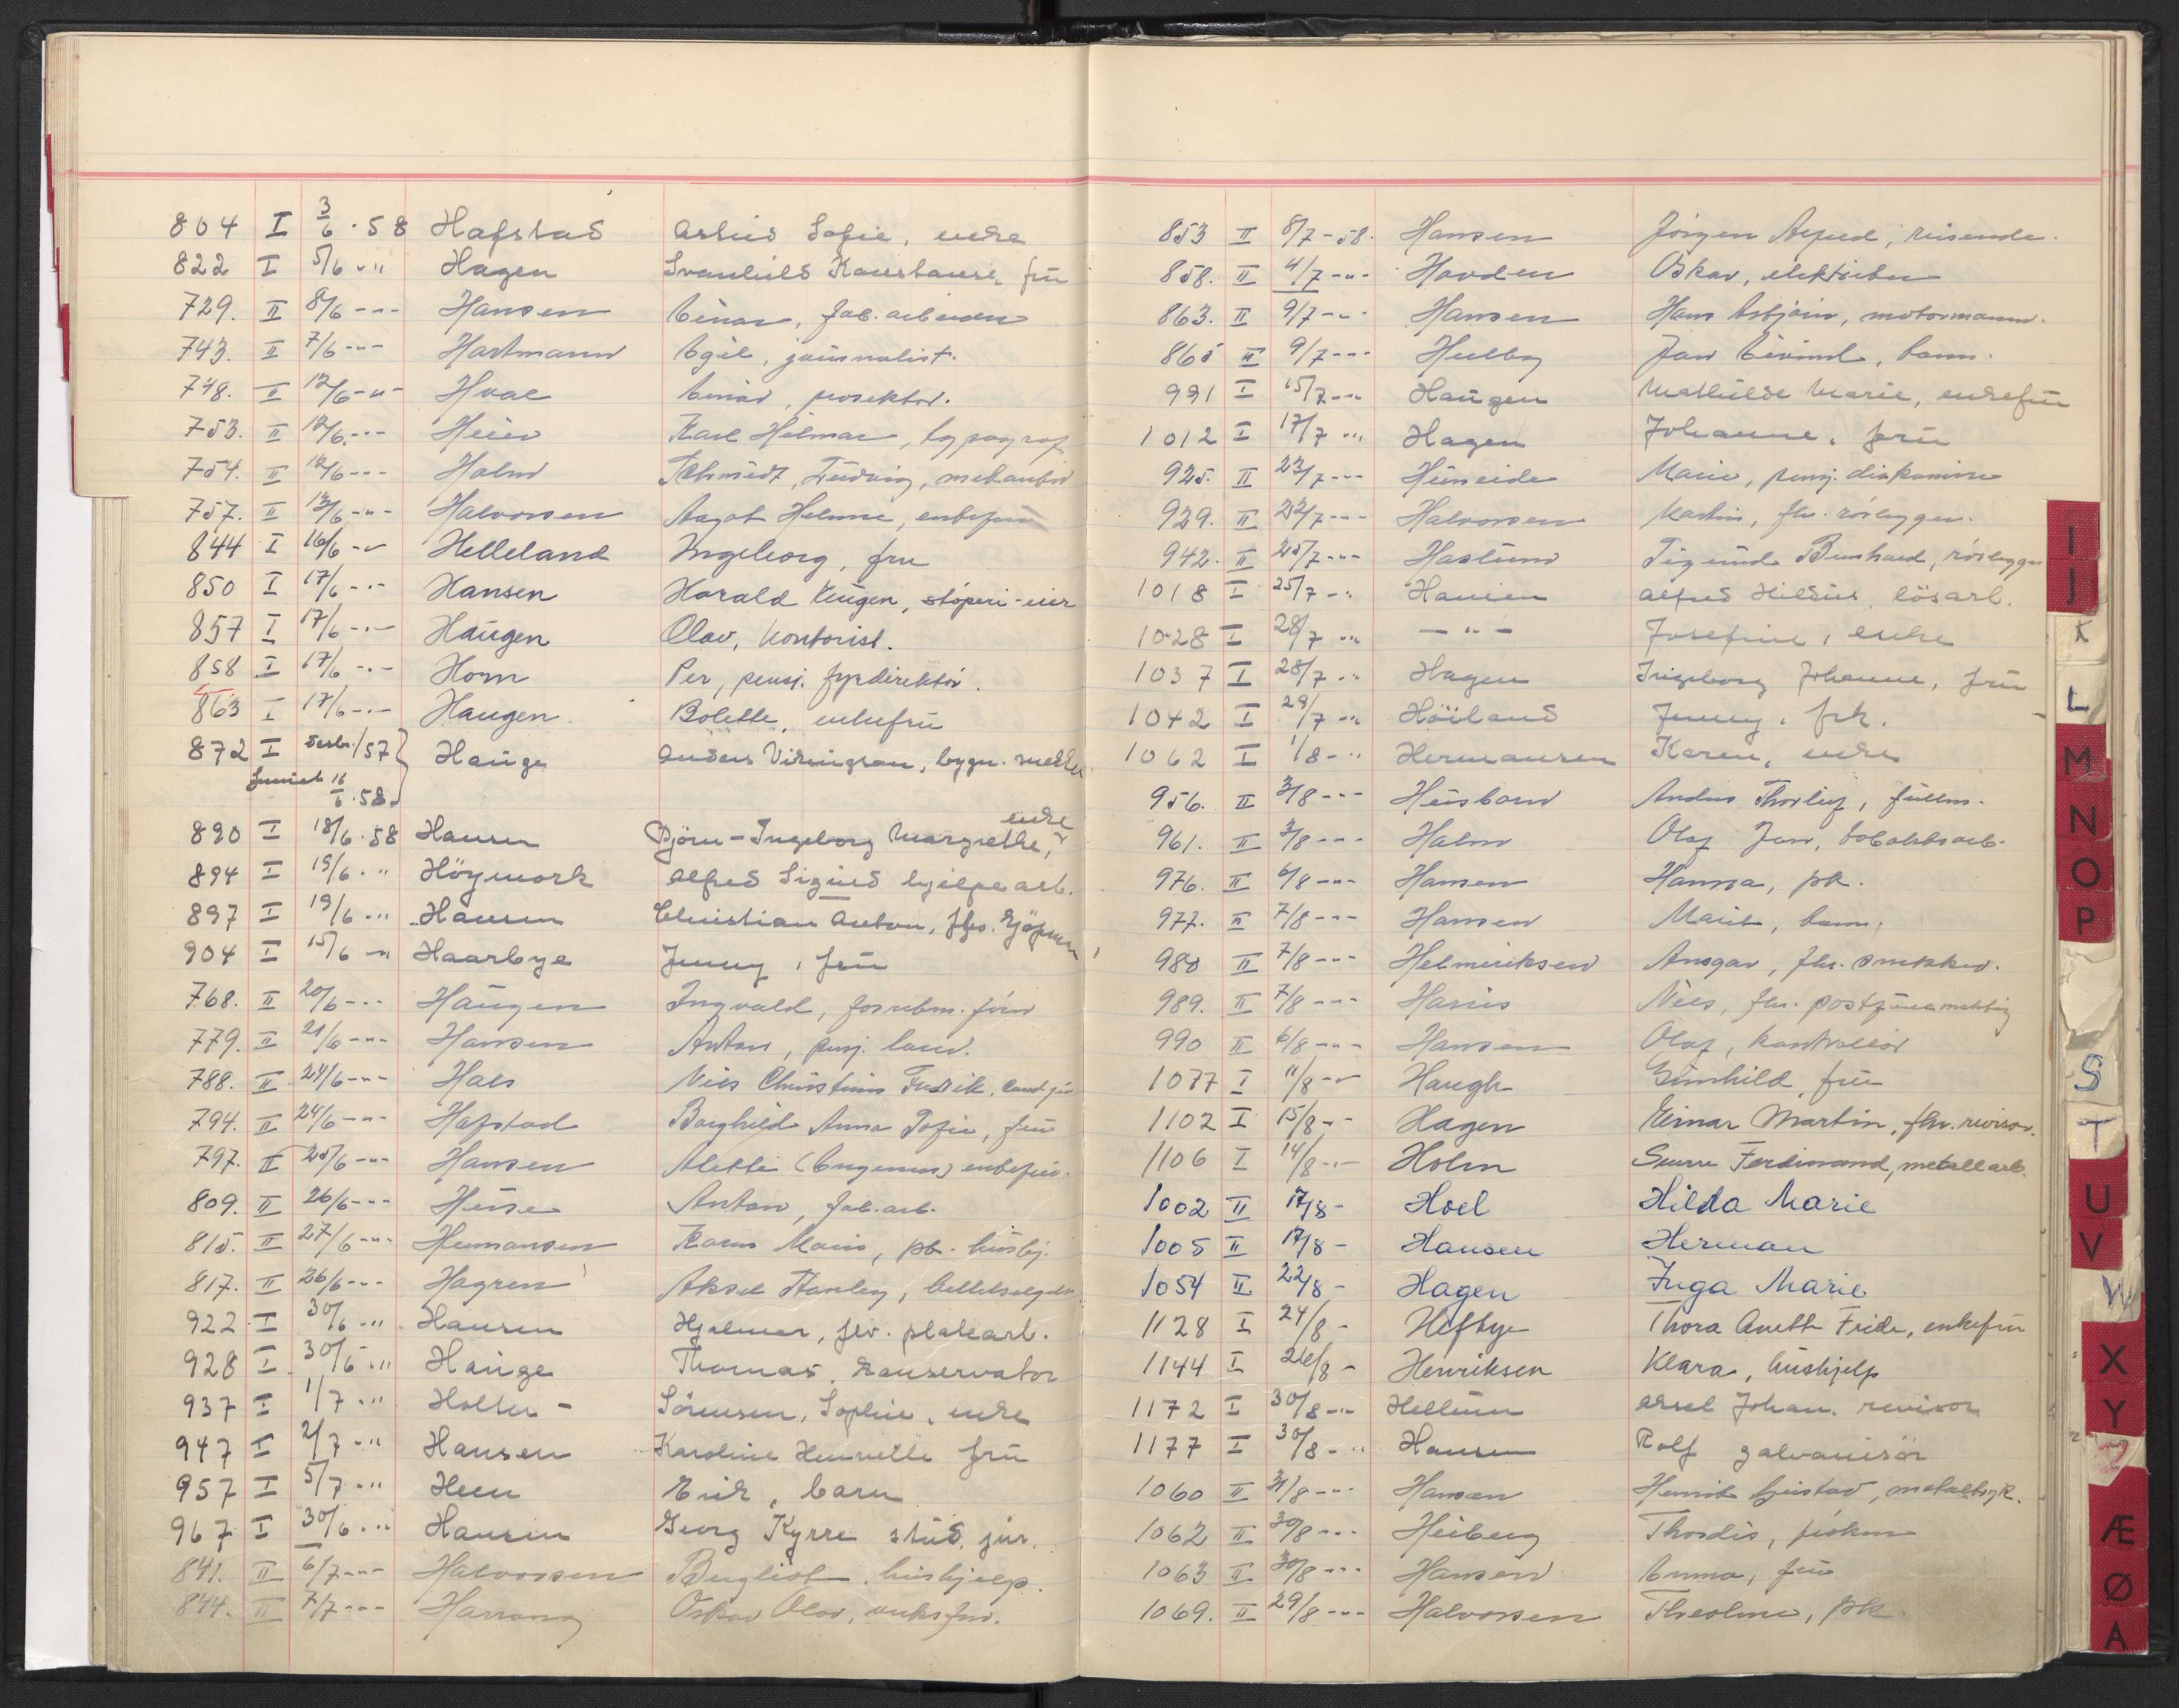 804 I 3/6 . 58 Hafstad Astrid Sofie, enke
822 I 5/6 - " Hagen Svanhild Konstanse, frü
729. II 8/6 - " - Hansen Einar, fab. arbeider
743. II 7/6 - " - Hartmann Egil, journalist.
748. II 12/6 - " - Hval Einar, prosektor.
753. II 12/6 - " - Heier Karl Hilmar, typograf
754. II 12/6 - " - Holm Schmidt, Ludvig,
757. II 13/6 - " - Halvorsen Aagot Helene, enkefru
844 I 16/6 - " Helleland Ingeborg, fru
850 I 17/6 - " - Hansen Harald Eugen, støperi-eier
857 I 17/6 - " - Haugen Olav, kontorist.
858 I 17/6 - " - Horn Per, pensj. fyrdirektør.
863 I 17/6 - " - Haugen Bolette, enkefrü
872 I desbr./57 Hauge Anders Vikingson, bygn.
funnet 16/6 . 58
enke
890 I 18/6 . 58 Hansen Bjørn-Ingeborg Margrethe,
894 I 19/6 . " Höymork Alfred Sigurd hjelpearb.
897 I 19/6 . " Hansen Christian Anton, fhv.
904 I 15/6 - " Haarbye Jenny, frü
768. II 20/6 - " - Haugen Ingvald, forretn. fører
779. II 21/6 - " - Hansen Anton, pensj.
788. II 24/6 - " - Hals Nils Christian Fredrik, cand. jur
794. II 24/6 - " - Hafstad Borghild Anna Sofie, frü
797. II 25/6 - " - Hansen Alette (Ingeman) enkefru.
809. II 26/6 - " - Heise Anton, fab. arb.
815. II 27/6 - " - Hermansen Karen Marie, frk. hüshj.
817. II 26/6 - " - Hagren Aksel Stanley,
922 I 30/6 . " Hansen Hjalmar, fhv. platearb.
928 I 30/6 . " Hauge Thomas, konservator
937 I 1/7 . " Holter - Sörensen, Sophie, enke
947 I 2/7 - " Hansen Karoline Henriette frü
957 I 5/7 - " Heen Eirik, barn
967 I 30/6 . " Hansen Georg Kyrre stüd. jür.
841. II 6/7 - " - Halvorsen Bergliot, hüshjelp.
844. II 7/7 - " - Harrang Oskar Olav,
853 II 8/7 - 58. Hansen Jörgen Alfred, reisende.
858. II 4/7 - " - Hovden Oskar, elektriker
863. II 9/7 - " - Hansen Hans Asbjørn, motormann.
865 II 9/7 - " - Hulby Jan Eivind, barn.
991 I 15/7 - " Haugen Mathilde Marie, enkefrü
1012 I 17/7 . " Hagen Johanne, frü
925. II 23/7 - " - Heimeide Marie, pensj. diakonisse
929. II 22/7 - " - Halvorsen Martin, fhv. rörlegger.
942. II 25/7 - " - Haslund Sigurd Bernhard, rörlegger
1018 I 25/7 - " Hansen Alfred Hildus, lösarb.
1028 I 28/7 . " - " - Josefine, enke
1037 I 28/7 . " Hagen Ingeborg Johanne, frü
1042 I 29/7 - " Höiland Jenny, frk.
1062 I 1/8 - " Hermansen Karen, enke
956. II 3/8 - " - Heisborn Anders Thorleif, fullm.
961. II 3/8 - " - Holm Olaf Jan, tobakksarb.
976. II 6/8 - " - Hansen Hanna, frk.
977. II 7/8 - " - Hansen Marit, barn,
980 II 7/8 - " - Helmeriksen Ansgar, fhv. snekker.
989. II 7/8 - " - Harris Niels, fhv.
990 II 6/8 - " - Hansen Olaf, kontrollör
1077 I 11/8 - " Haugh Gunhild, frü
1102 I 15/8 - " Hagen Einar Martin, fhv. revisor.
1106 I 14/8 - " - Holm Sverre Ferdinand, metallarb.
1002 II 17/8 - Hoel Hilda Marie
1005 II 17/8 - Hansen Herman
1054 II 22/8 - Hagen Inga Marie
1128 I 24/8 - Heftye Thora Anette Fride, enkefrü
1144 I 26/8 - Henriksen Klara, hüshjelp
1172 I 30/8 - " Hellum Aksel Johan, revisor
1177 I 30/8 - " Hansen Rolf galvanisör
1060 II 31/8 - " - Hansen Henrik Gustav,
1062 II 30/8 - " - Heiberg Thordis, frøken
1063 II 30/8 - " - Hansen Emma, frü
1069. II 29/8 - " - Halvorsen Theoline, frk.
I
J
K
L
M
N
O
P
S
T
U
V
W
X
Y
Z
Æ
Ø
A